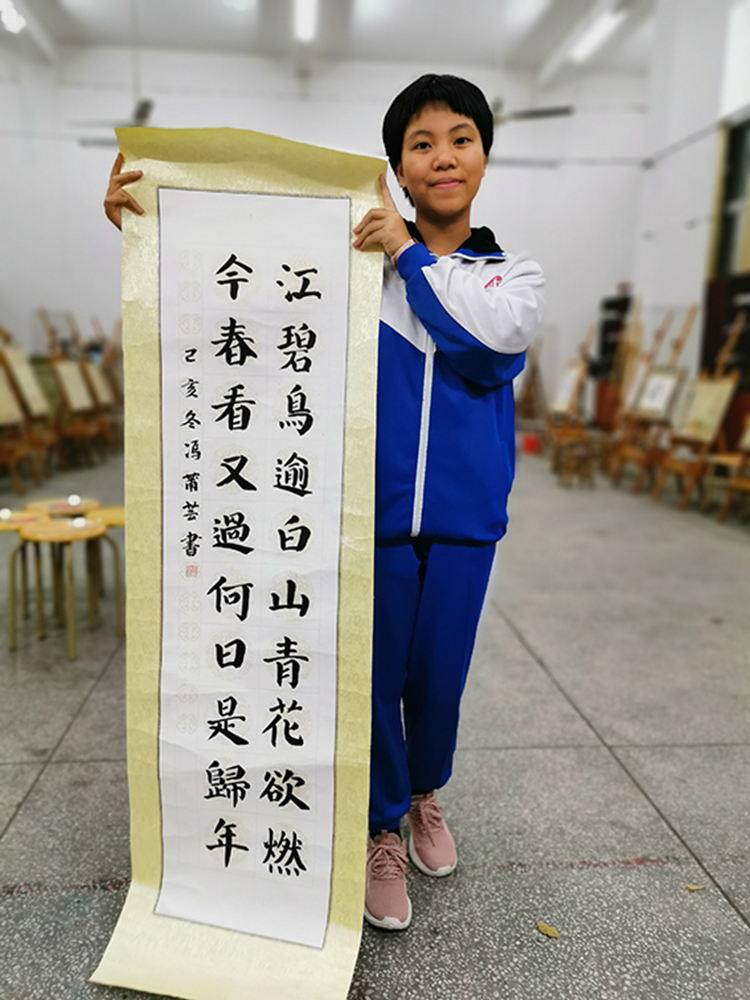 江碧鳥逾白山青花欲燃
今春看又過何日是歸年
己亥冬馮莆芸書